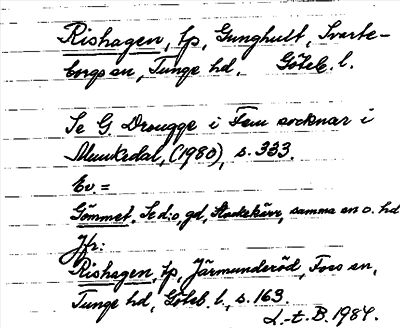 Rishagen, tp, Gunghult, Svarte-
borgs sn, Tunge hd, Göteb. l.
Se G. Drougge i Fem socknar i
Munkedal, (1980), s. 333.
Ev. =
Gömmet. Se d:o, gd, Stockekärr, samma sn o. hd
Jfr:
Rishagen, tp, Järmunderöd, Foss sn,
Tunge hd, Göteb. l., s. 163.
L-t. B. 1984.